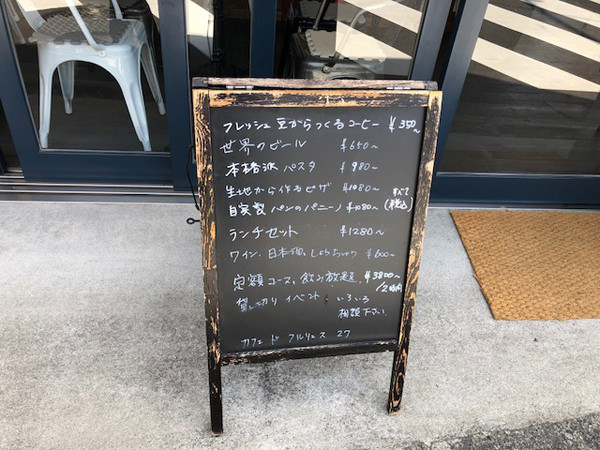 フレッシュ豆からつくるコーヒー ¥350~
世界のビール ¥650~
本格派 パスタ ¥980~
生地から作るピザ ¥1080~
自家製 パンのパニーノ ¥1080~ すべて(税込)
ランチセット ¥1280~
ワイン、日本酒、しょうちゅう ¥600~
定額コース、飲み放題、¥3800~
/2時間
貸し切り イベント いろいろ
相談下さい
カフェ ド 27